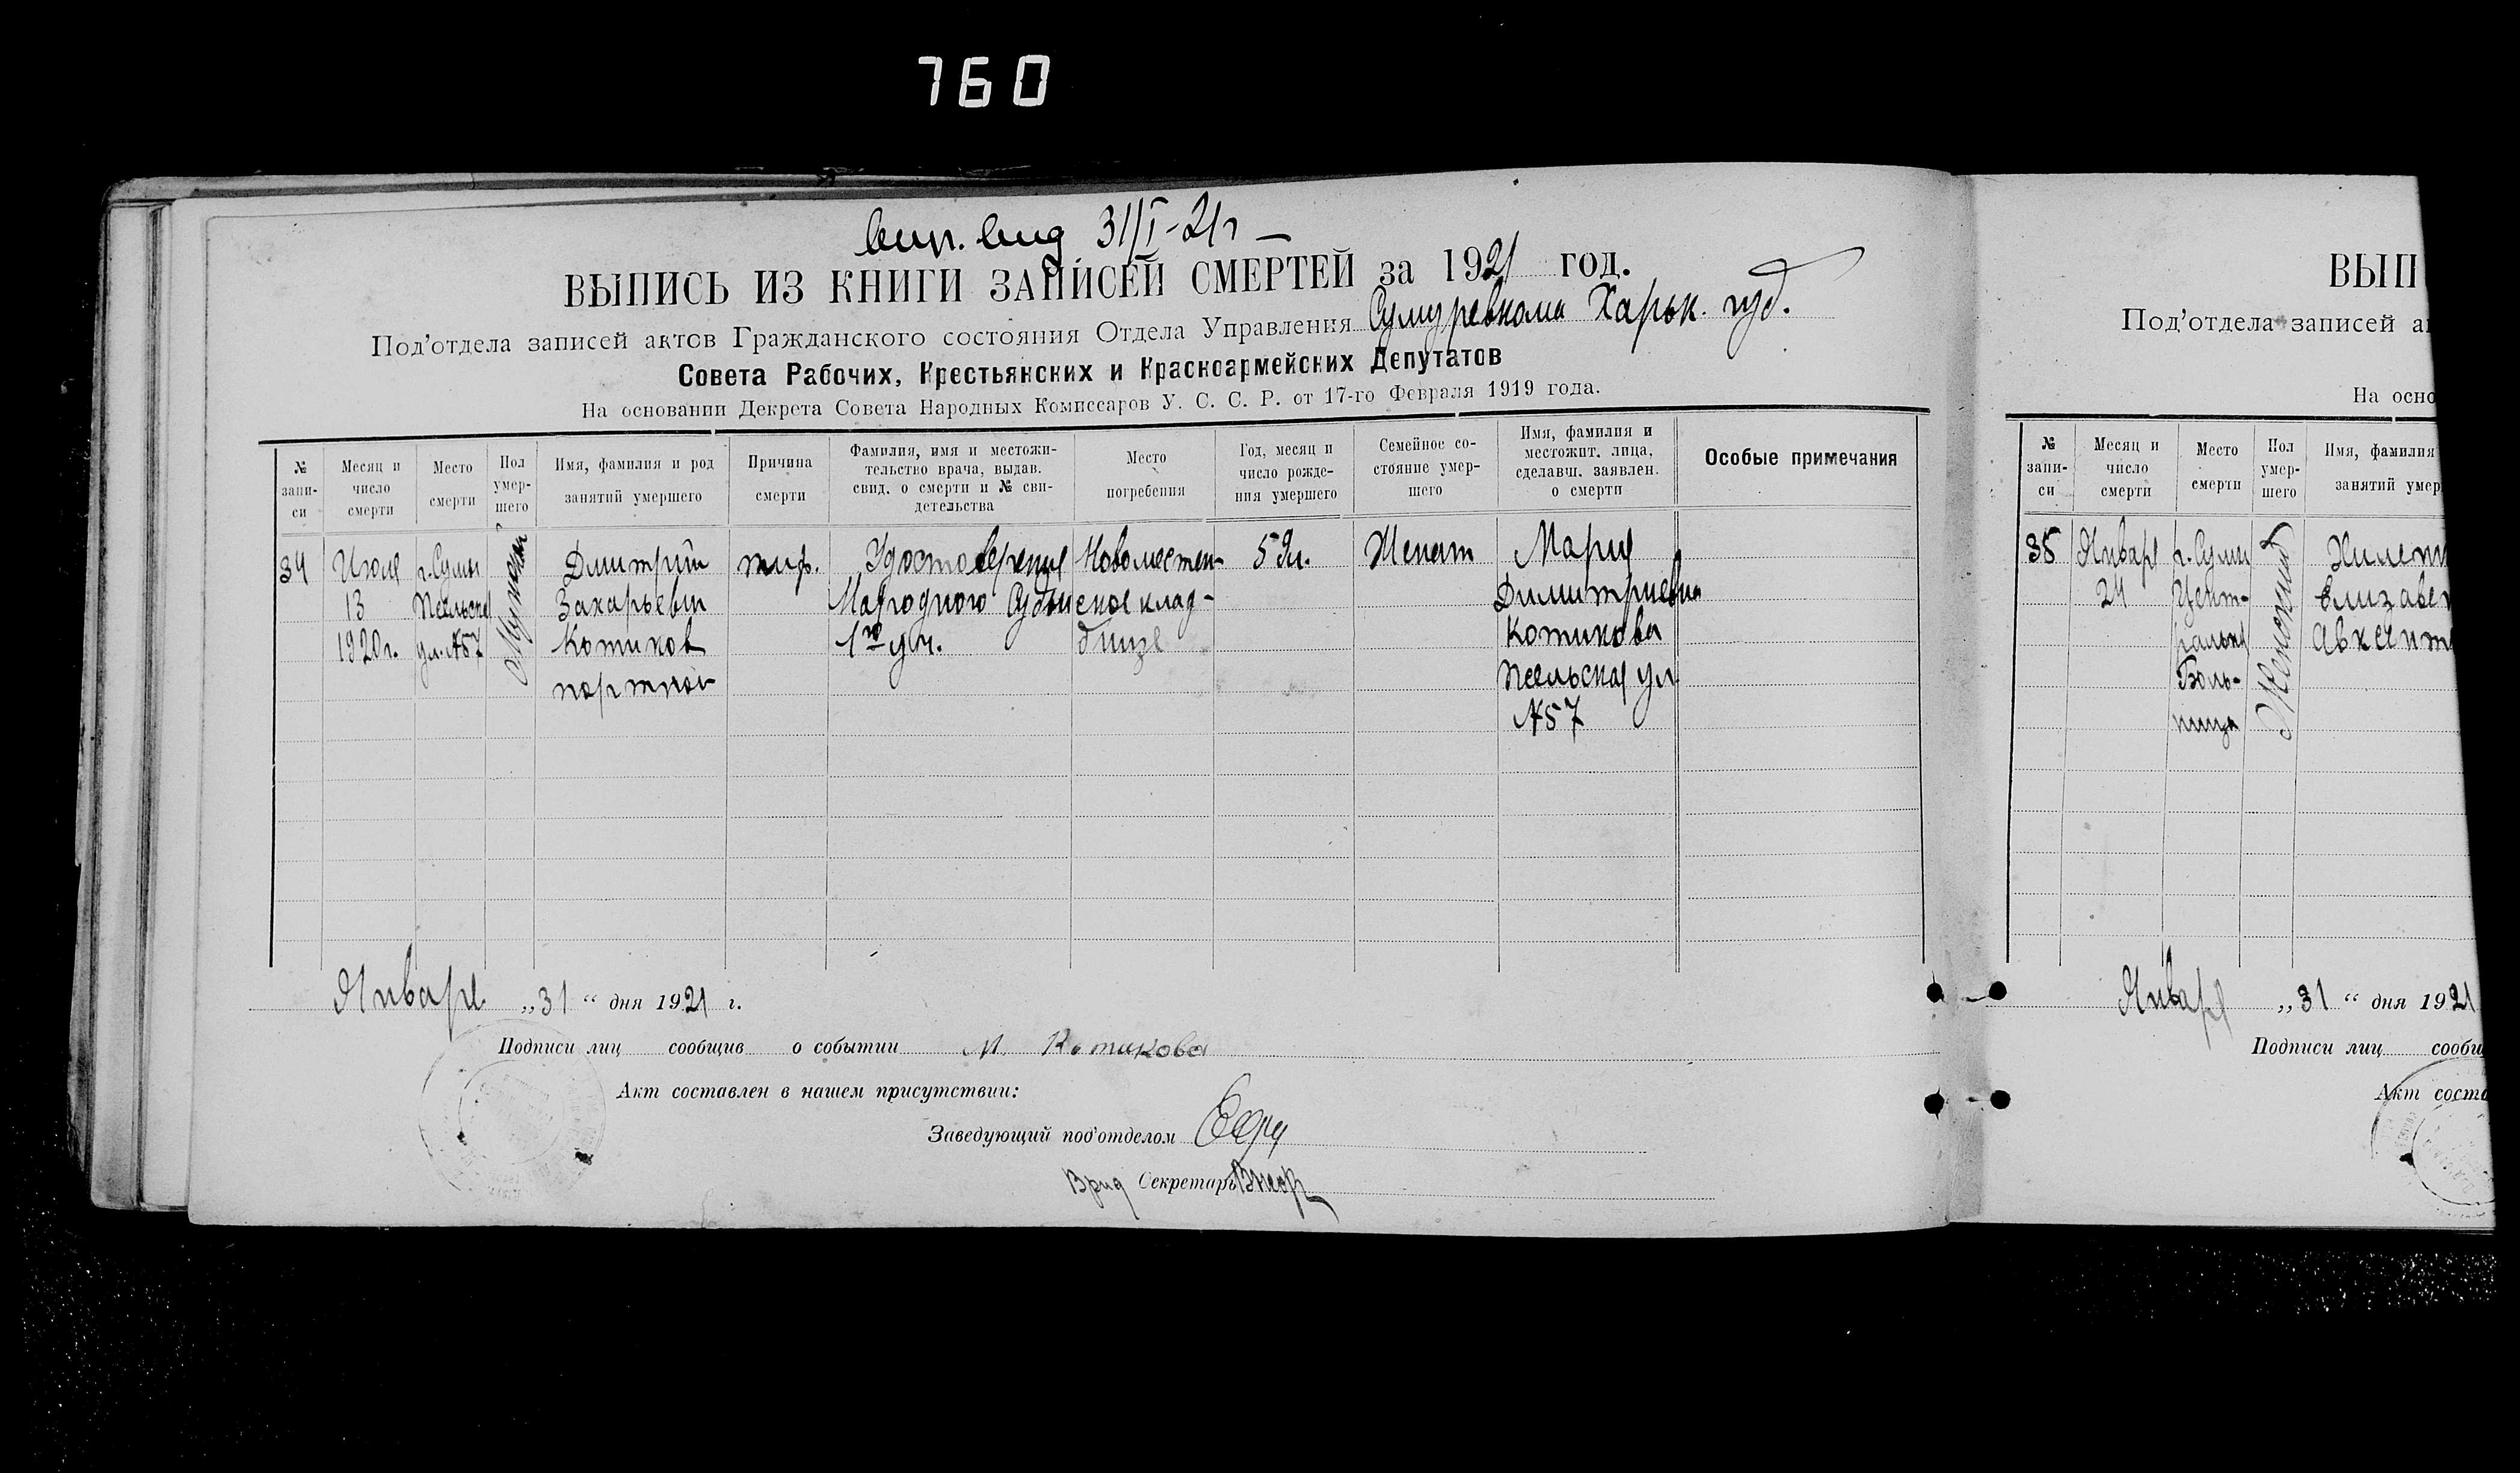 760
Вып. выд 31/I-21г
ВЫПИСЬ ИЗ КНИГИ ЗАПИСЕЙ СМЕРТЕЙ за 1921 год.
Под'отдела записей актов Гражданского состояния Отдела Управления Сумуревкома Харьк. губ.
Совета Рабочих, Крестьянских и Красноармейских Депутатов
На основании Декрета Совета Народных Комиссаров У. С. С. Р. от 17-го Февраля 1919 года.
№ запи-
си
Месяц и
число
смерти
Место
смерти
Пол
умер-
шего
Имя, фамилия и род
занятий умершего
Причина
смерти
Фамилия, имя и местожи-
тельство врача, выдав.
свид. о смерти и № сви-
детельства
Место
погребения
Год, месяц и
число рожде-
ния умершего
Семейное со-
стояние умер-
шего
Имя, фамилия и
местожит. лица,
сделавш. заявлен.
о смерти
Особые примечания
34
Июля
13
1920г.
г. Сумы
Псельская
ул. №57
Мужской
Дмитрий
Захарьевич
Котиков
портной
тиф.
Удостоверение
Народного Судьи
1го уч.
Новоместен-
ское клад-
бище
59л.
Женат
Мария
Димитриевна
Котикова
Псельская ул
№57
Января „31“ дня 1921 г.
Подписи лиц сообщив о событии М. Котикова
Акт составлен в нашем присутствии:
Заведующий под'отделом
Врид Секретарь
ВЫП
Под'отдела записей а
На осно
№
запи-
си
Месяц и
число
смерти
Место
смерти
Пол
умер-
шего
Имя, фамилия
занятий умер
35
Января
24
г. Сумы
Цент-
ральная
Боль-
ница
Женский
Елизавет
Января „31“ дня 1921
Подписи лиц сообщ
Акт соста